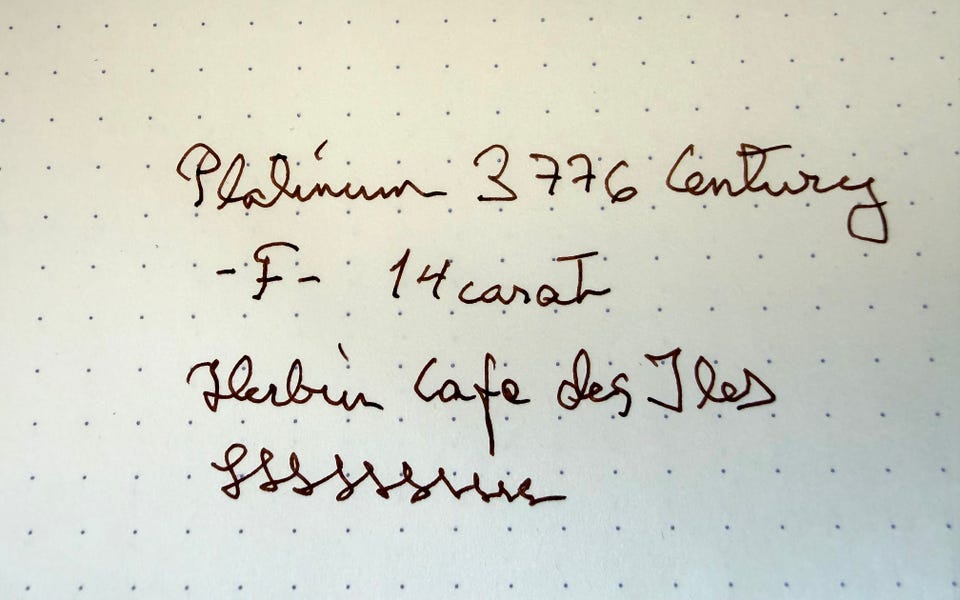 Platinum 3776 Century
-F- 14 carat
Herbin Cafe des Iles